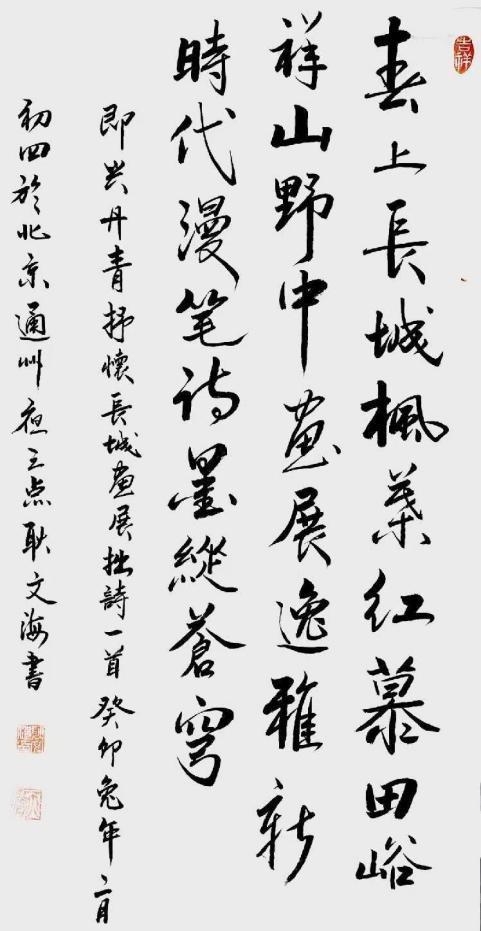 吉祥
喜上長城楓葉红慕田峪
祥山野中畫展逸雅新
時代漫笔诗墨縱蒼穹
即兴丹青抒懷長城畫展拙詩一首 癸卯兔年二月
初四於北京通州夜三点耿文海書